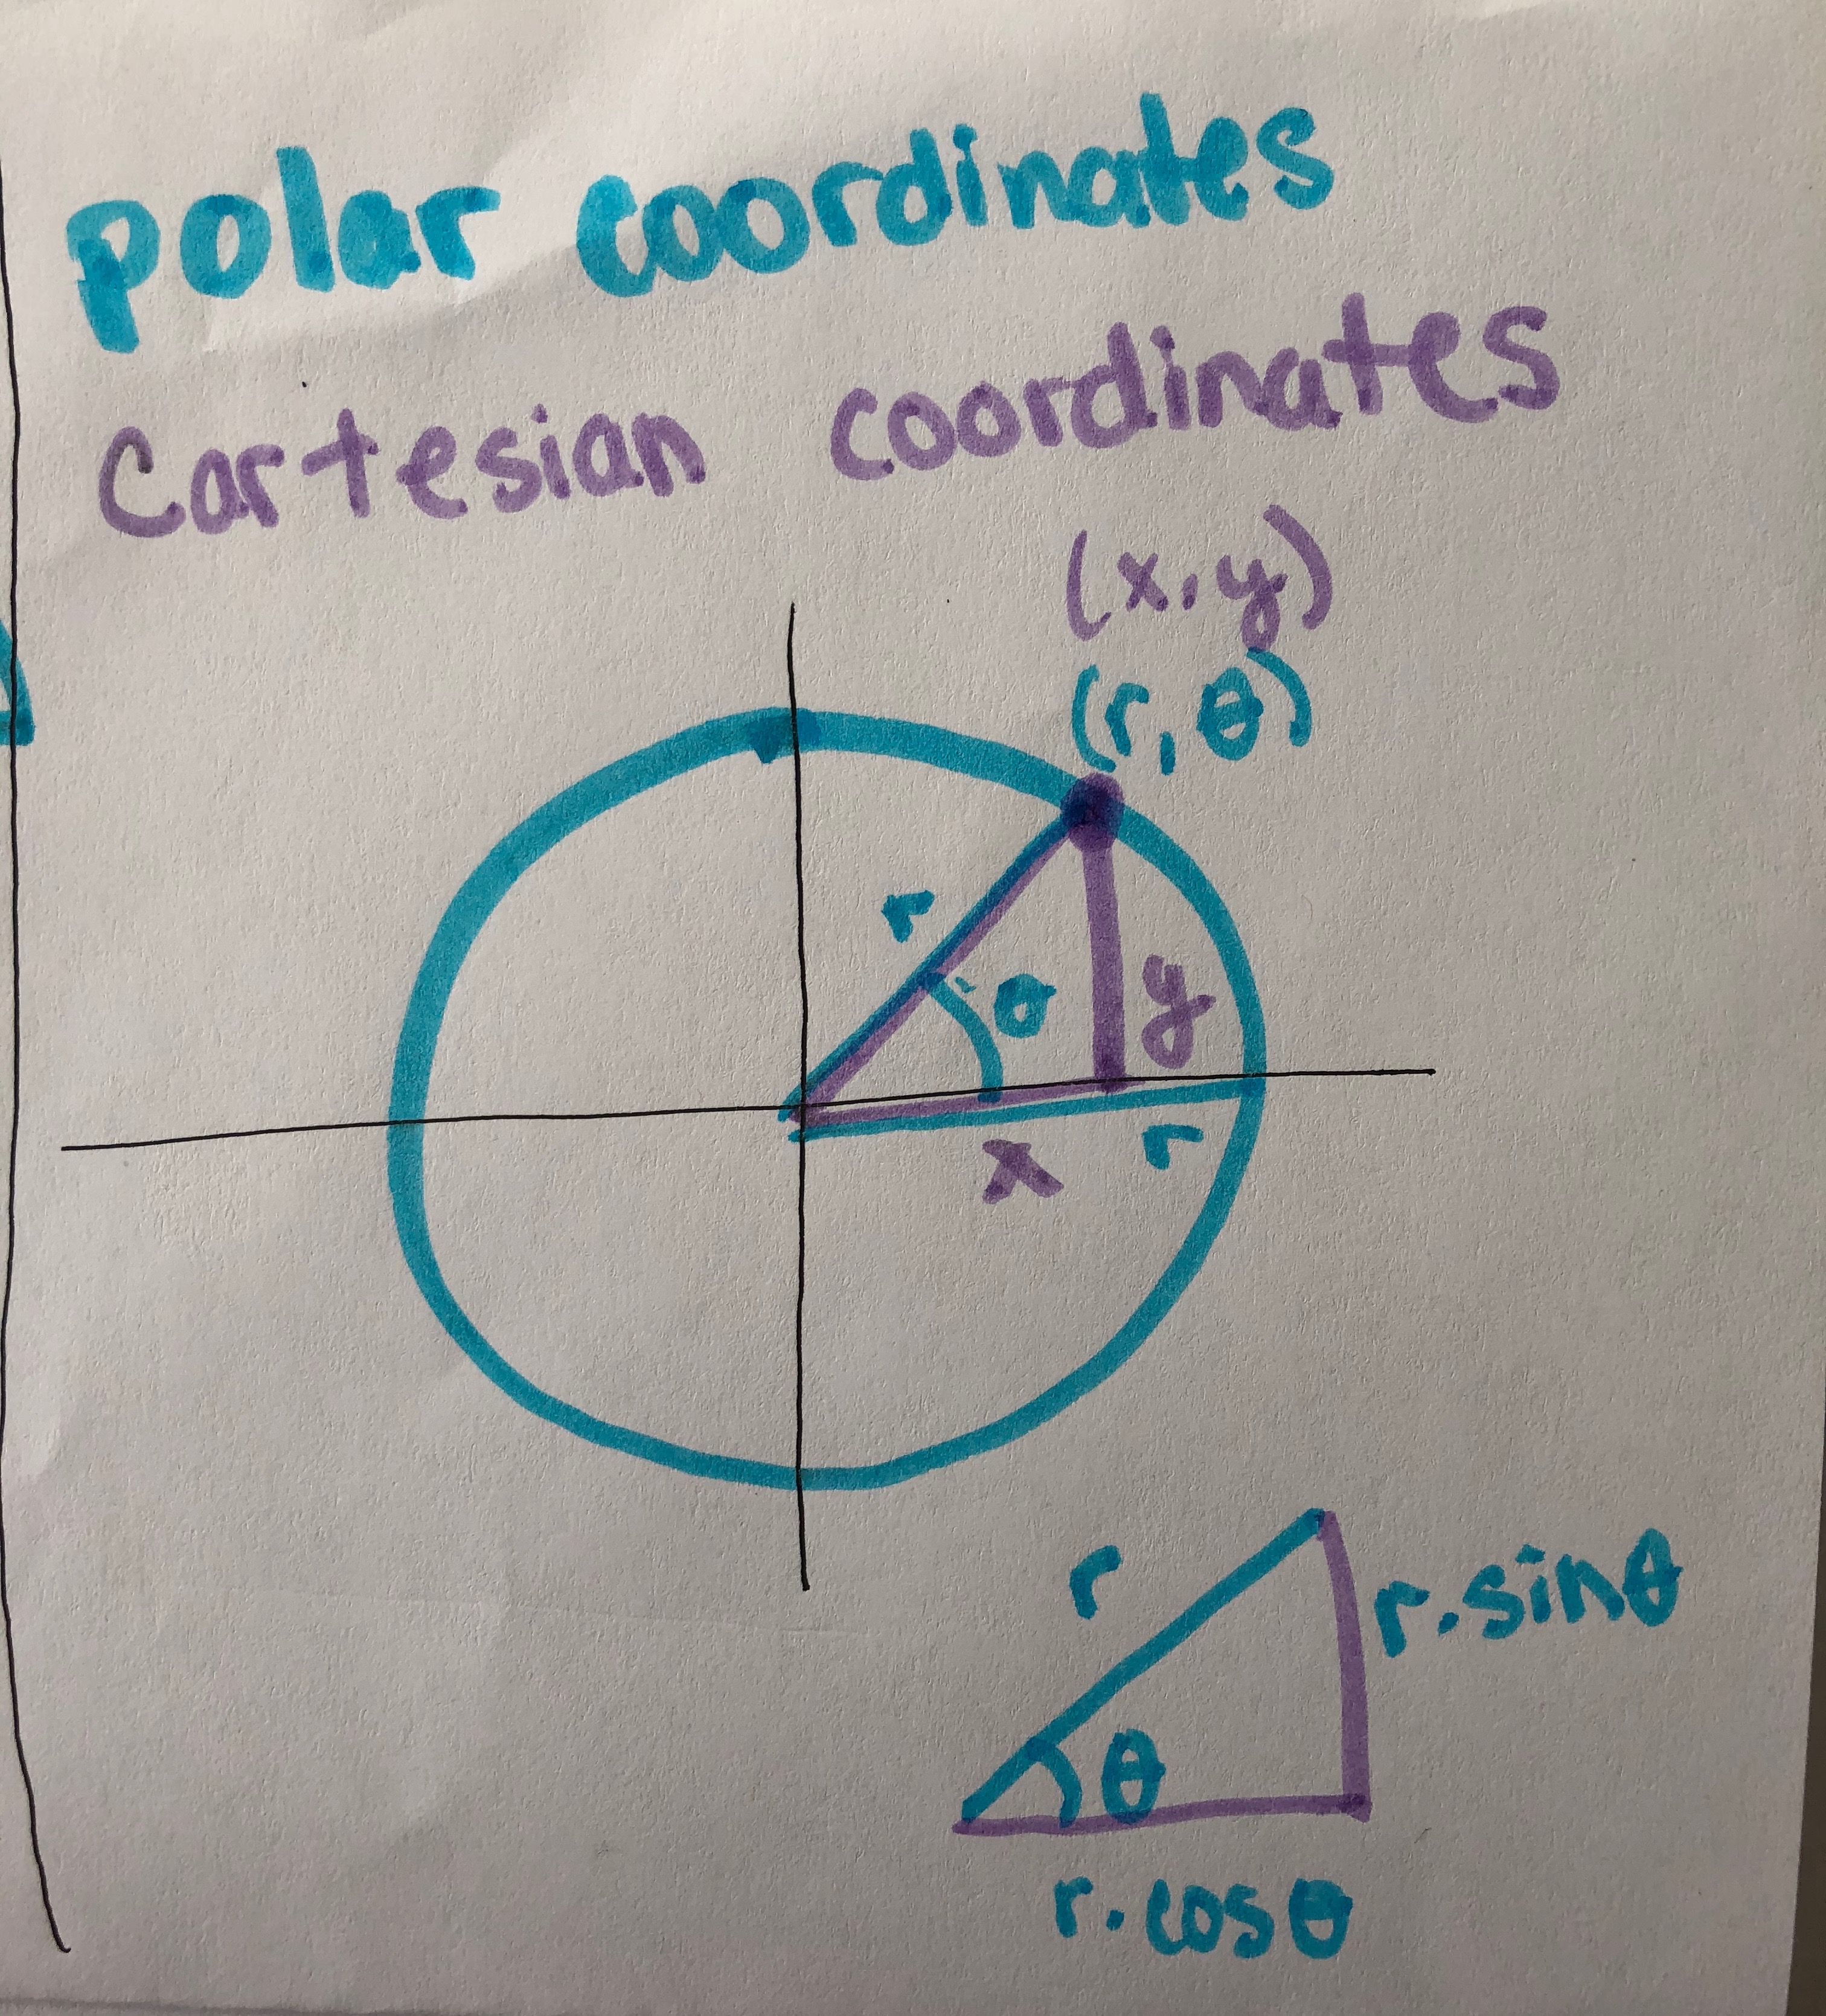 polar coordinates
Cartesian coordinates
(x,y)
(r,θ)
r
θ
y
x
r
r
r.sinθ
θ
r.cosθ